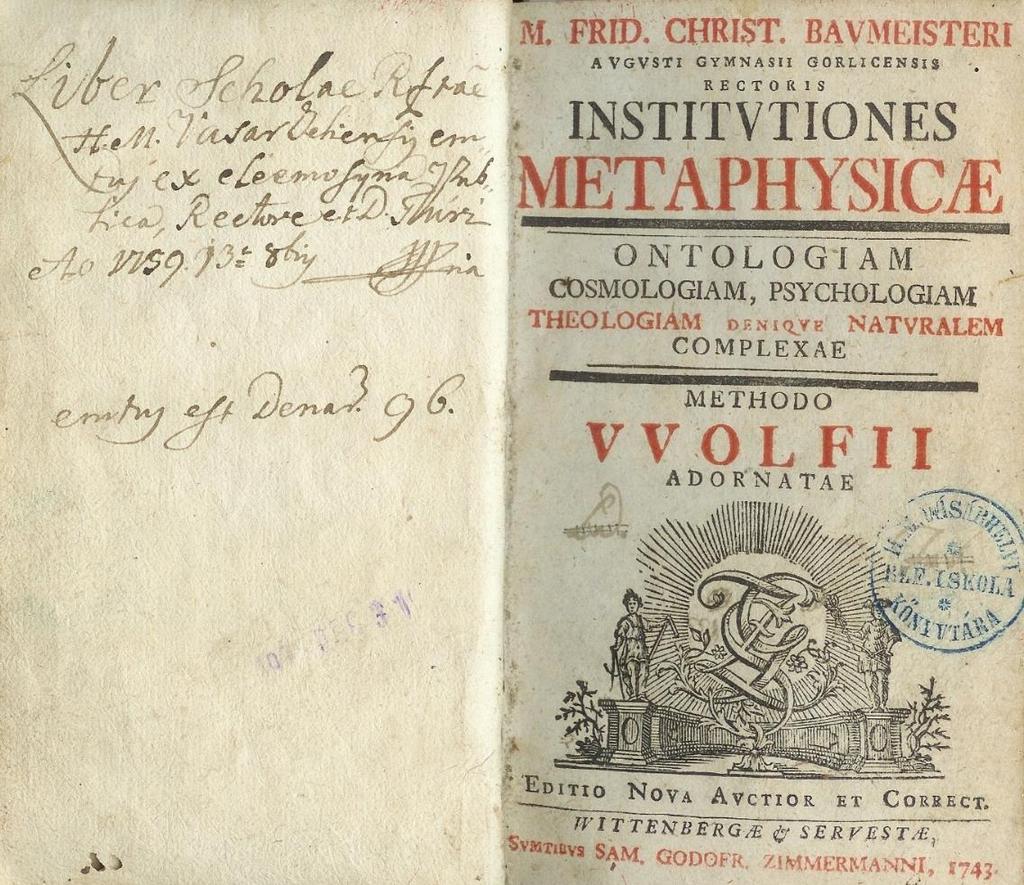 Liber Scholae Rftae
H.M. Vasar Vehiensis em-
tus ex eleemosyna Pub-
lica, Rectore et D.
Ao 1759. 13. 8bris
emtus est Denar. 96.
DEC 31
M. FRID. CHRIST. BAVMEISTERI
AVGVSTI GYMNASII GORLICENSIS
RECTORIS
INSTITVTIONES
METAPHYSICÆ
ONTOLOGIAM
COSMOLOGIAM, PSYCHOLOGIAM
THEOLOGIAM DENIQVE NATVRALEM
COMPLEXAE
METHODO
VVOLFII
ADORNATAE
H. M. VÁSÁRHELYI
REF. ISKOLA
KÖNYVTÁRA
EDITIO NOVA AVCTIOR ET CORRECT.
WITTENBERGÆ & SERVESTÆ,
SVMTIBVS SAM. GODOFR. ZIMMERMANNI, 1743.